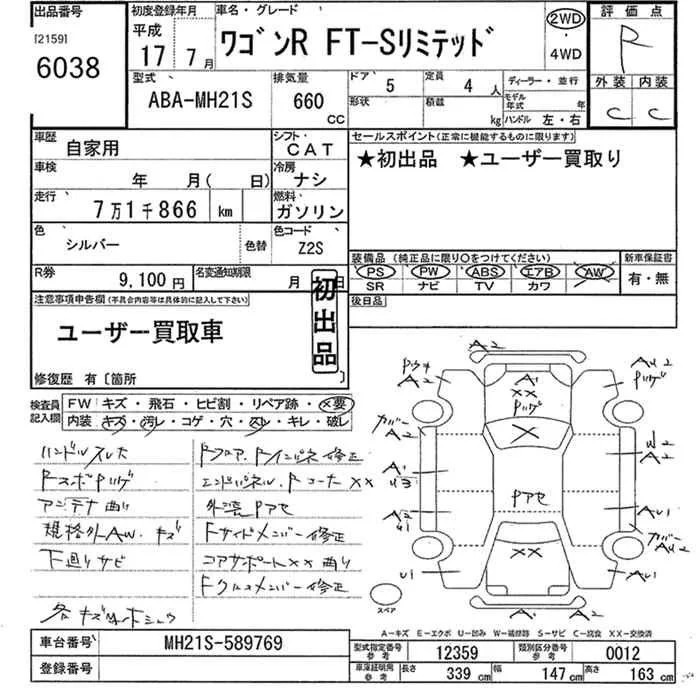 出品番号 初度登録年月 車名・グレード 評価点
[2159] 平成 2WD
6038 17年 7月 ワゴンR FT-Sリミテッド ・ R
4WD
型式 排気量 ドア 5 定員 4人 ディーラー・並行 外装 内装
ABA-MH21S 660 CC 形状 積載 kg モデル年式 年 C C
ハンドル 左・右
車歴 自家用 シフト CAT セールスポイント(正常に機能するものに限ります)
★初出品 ★ユーザー買取り
車検 年 月( 日) 冷房 ナシ
走行 7万1千866 km 燃料 ガソリン
色 シルバー 色替 色コード Z2S
装備品 (純正品に限り○をつけてください) 新車保証書
PS PW ABS エアB AW 有・無
SR ナビ TV カワ
R券 9,100円 名変通知期限 月 日 後日品
初出品
注意事項申告欄(不具合内容等は具体的に記入して下さい)
ユーザー買取車
修復歴 有〔箇所 〕
検査員記入欄 FW キズ・飛石・ヒビ割・リペア跡・×要
内装 キズ・汚レ・コゲ・穴・スレ・キレ・破レ
ハンドルスレ大 RフロアRインパネ修正
RスポPハゲ エンドパネル、Rコーナー××
アンテナ曲り 外装Pアセ
規格外AW.キズ Fサイドメンバー修正
下廻りサビ コアサポート××曲り
Fクロスメンバー修正
A2
A2
A2
A1
××
Pハゲ
×
Pアセ
××
AU2
Pハゲ
カバー
A2
A1
U3
A2
U1
U1
U2
A2
AU1
カバー
AU2
AU1
A1
A2
スペア
A-キズ E-エクボ U-凹み W-補修跡 S-サビ C-腐食 XX-交換済
車台番号 MH21S-589769 型式指定番号 参考 12359 類別区分番号 参考 0012
登録番号 車庫証明用 参考 長さ 339 cm 幅 147 cm 高さ 163 cm